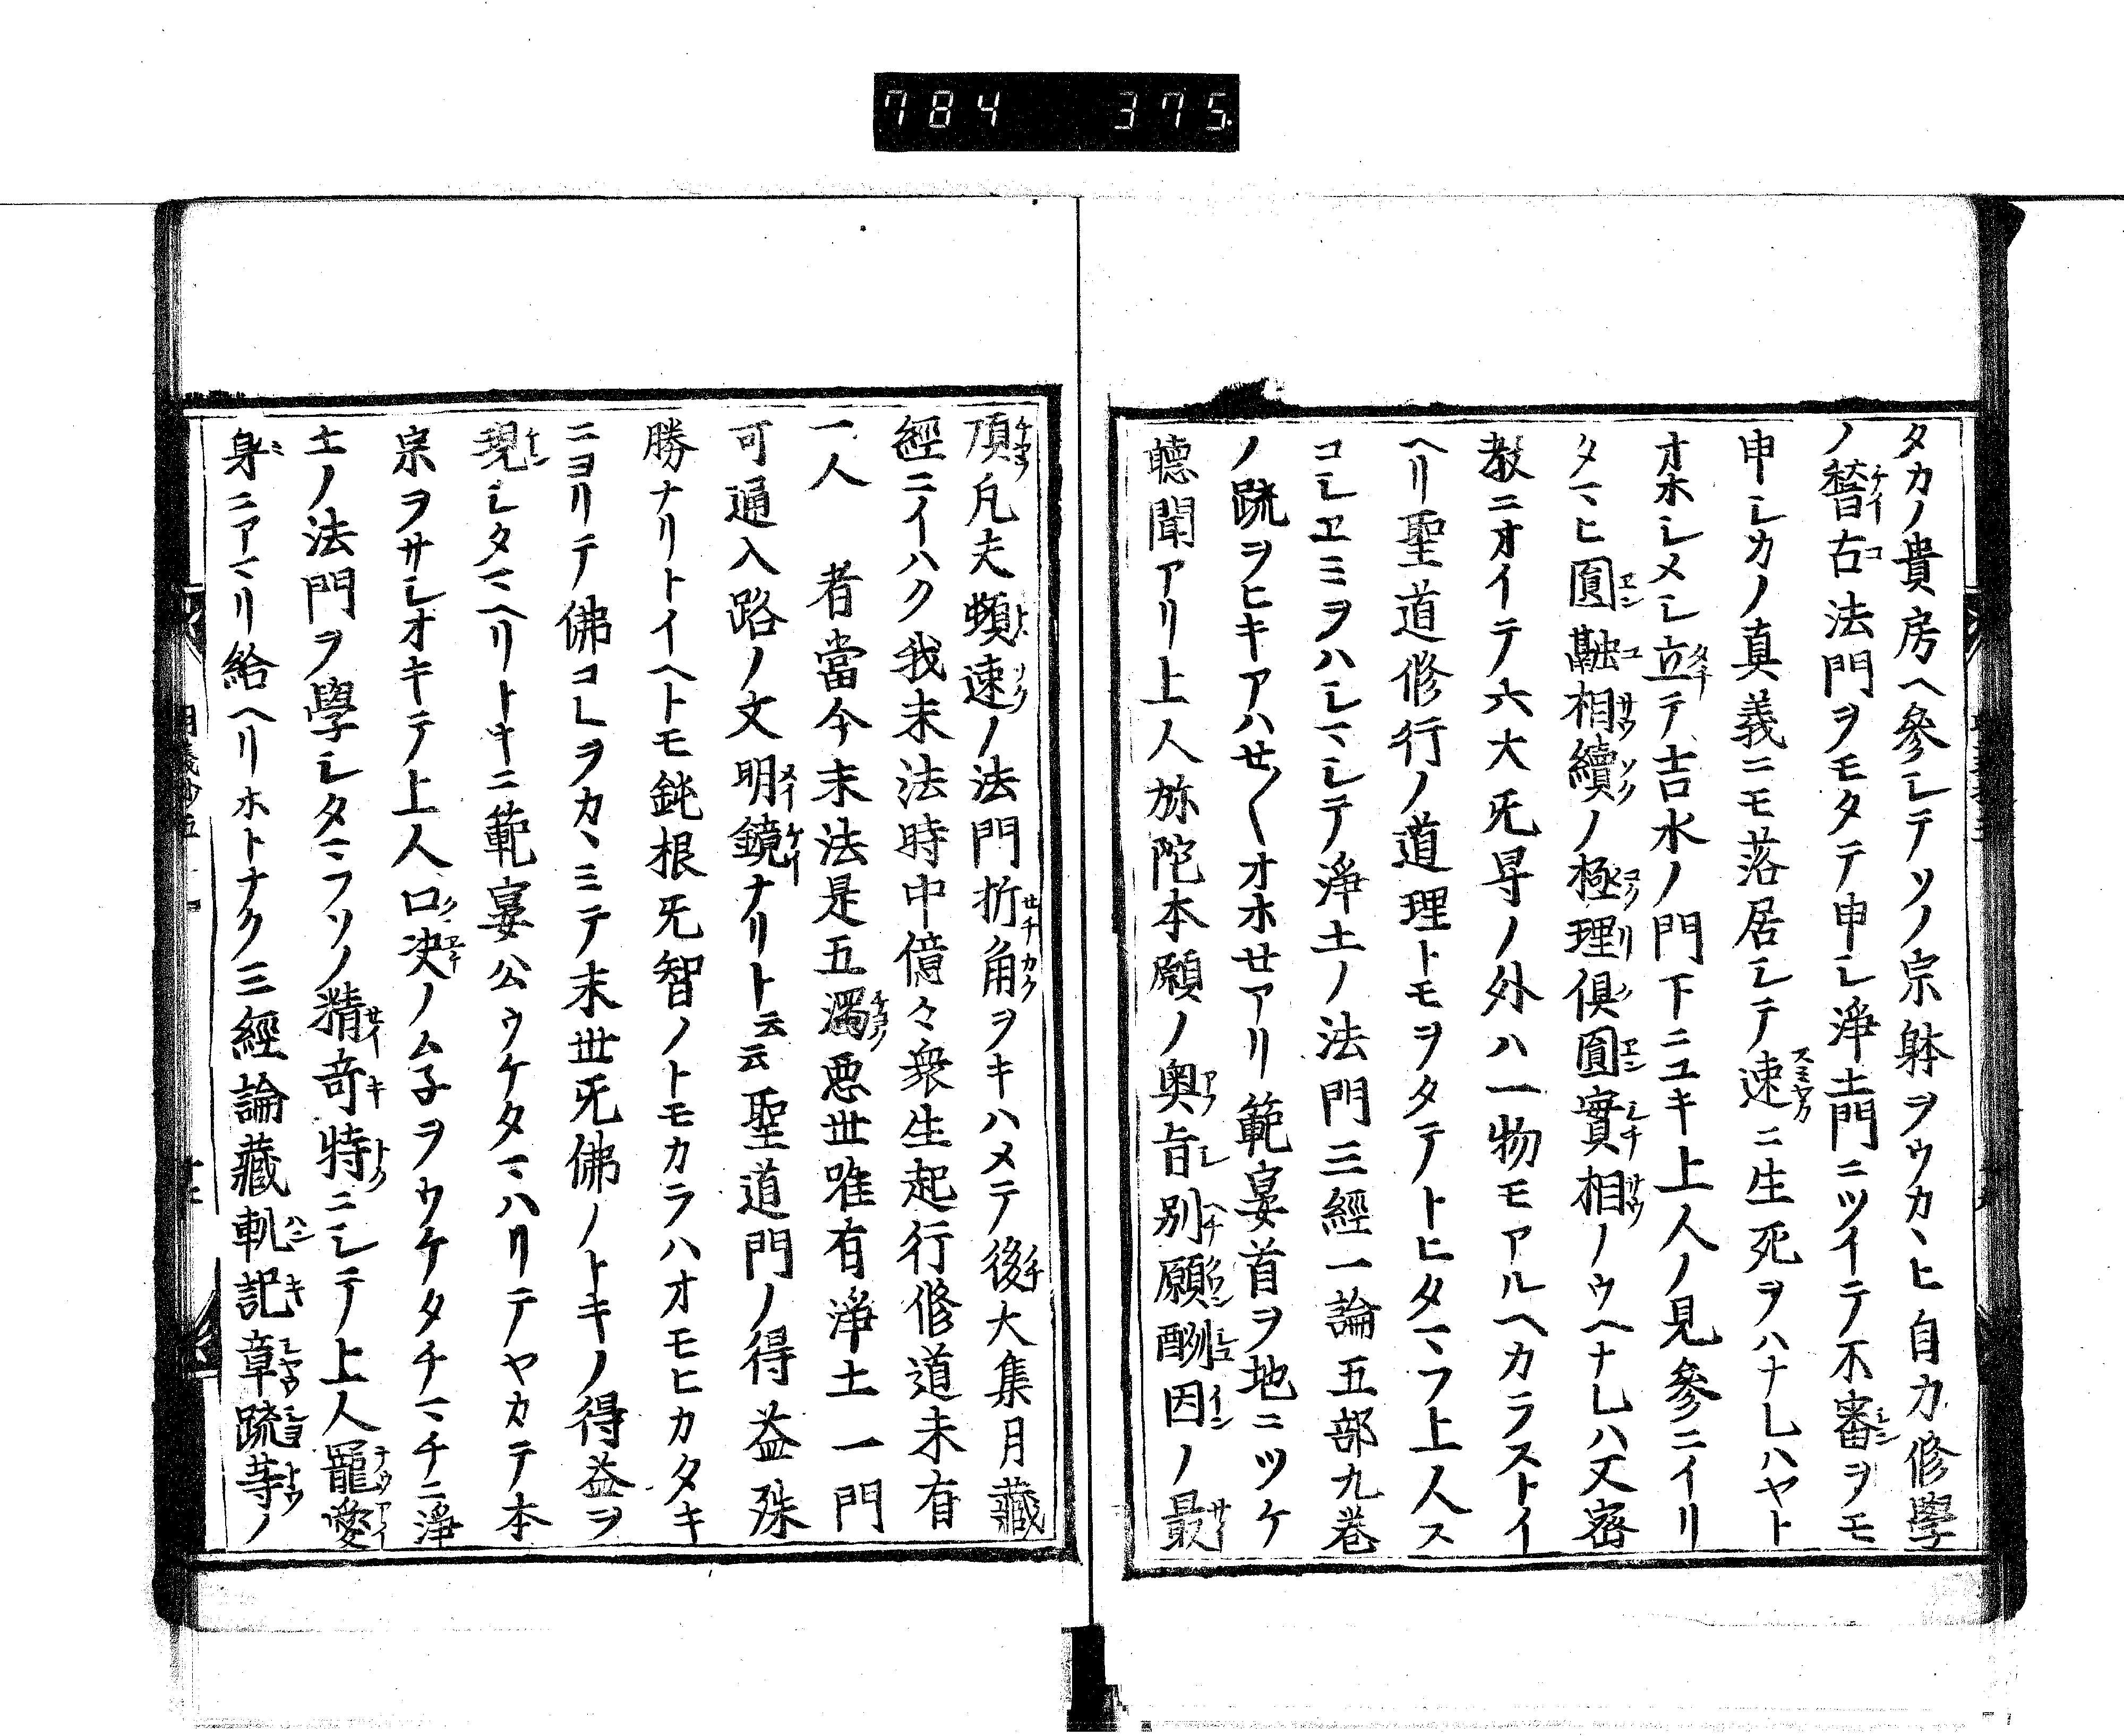 784 375
タカノ貴房ヘ參シテソノ宗躰ヲウカヽヒ自力修學
ノ稽古法門ヲモタテ申シ淨土門ニツイテ不審ヲモ
申シカノ真義ニモ落居シテ速ニ生死ヲハナレハヤト
オホシメシ立テ吉水ノ門下ニユキ上人ノ見參ニイリ
タマヒ圓融相續ノ極理俱圓實相ノウヘナレハ丈密
教ニオイテ六大旡导ノ外ハ一物モアルヘカラストイ
ヘリ聖道修行ノ道理トモヲタテトヒタマフ上人ス
コシヱミヲハシマシテ淨土ノ法門三經一論五部九巻
ノ䟽ヲヒキアハせ〱オホセアリ範宴首ヲ地ニツケ
聴聞アリ上人弥陀本願ノ奥旨別願酬因ノ最
頂凡夫頓速ノ法門折角ヲキハメテ後大集月藏
經ニイハク我末法時中億々衆生起行修道未有
一人　者當今末法是五濁悪世唯有淨土一門
可通入路ノ文明鏡ナリト云云聖道門ノ得益殊
勝ナリトイヘトモ鈍根旡智ノトモカラハオモヒカタキ
ニヨリテ佛コレヲカヽミテ末世旡佛ノトキノ得益ヲ
現シタマヘリトキニ範宴公ウケタマハリテヤカテ本
宗ヲサシオキテ上人口決ノムネヲウケタチマチニ淨
土ノ法門ヲ學シタマフソノ精奇特ニシテ上人寵愛
身ニアマリ給ヘリホトナク三經論藏軌記章䟽等ノ